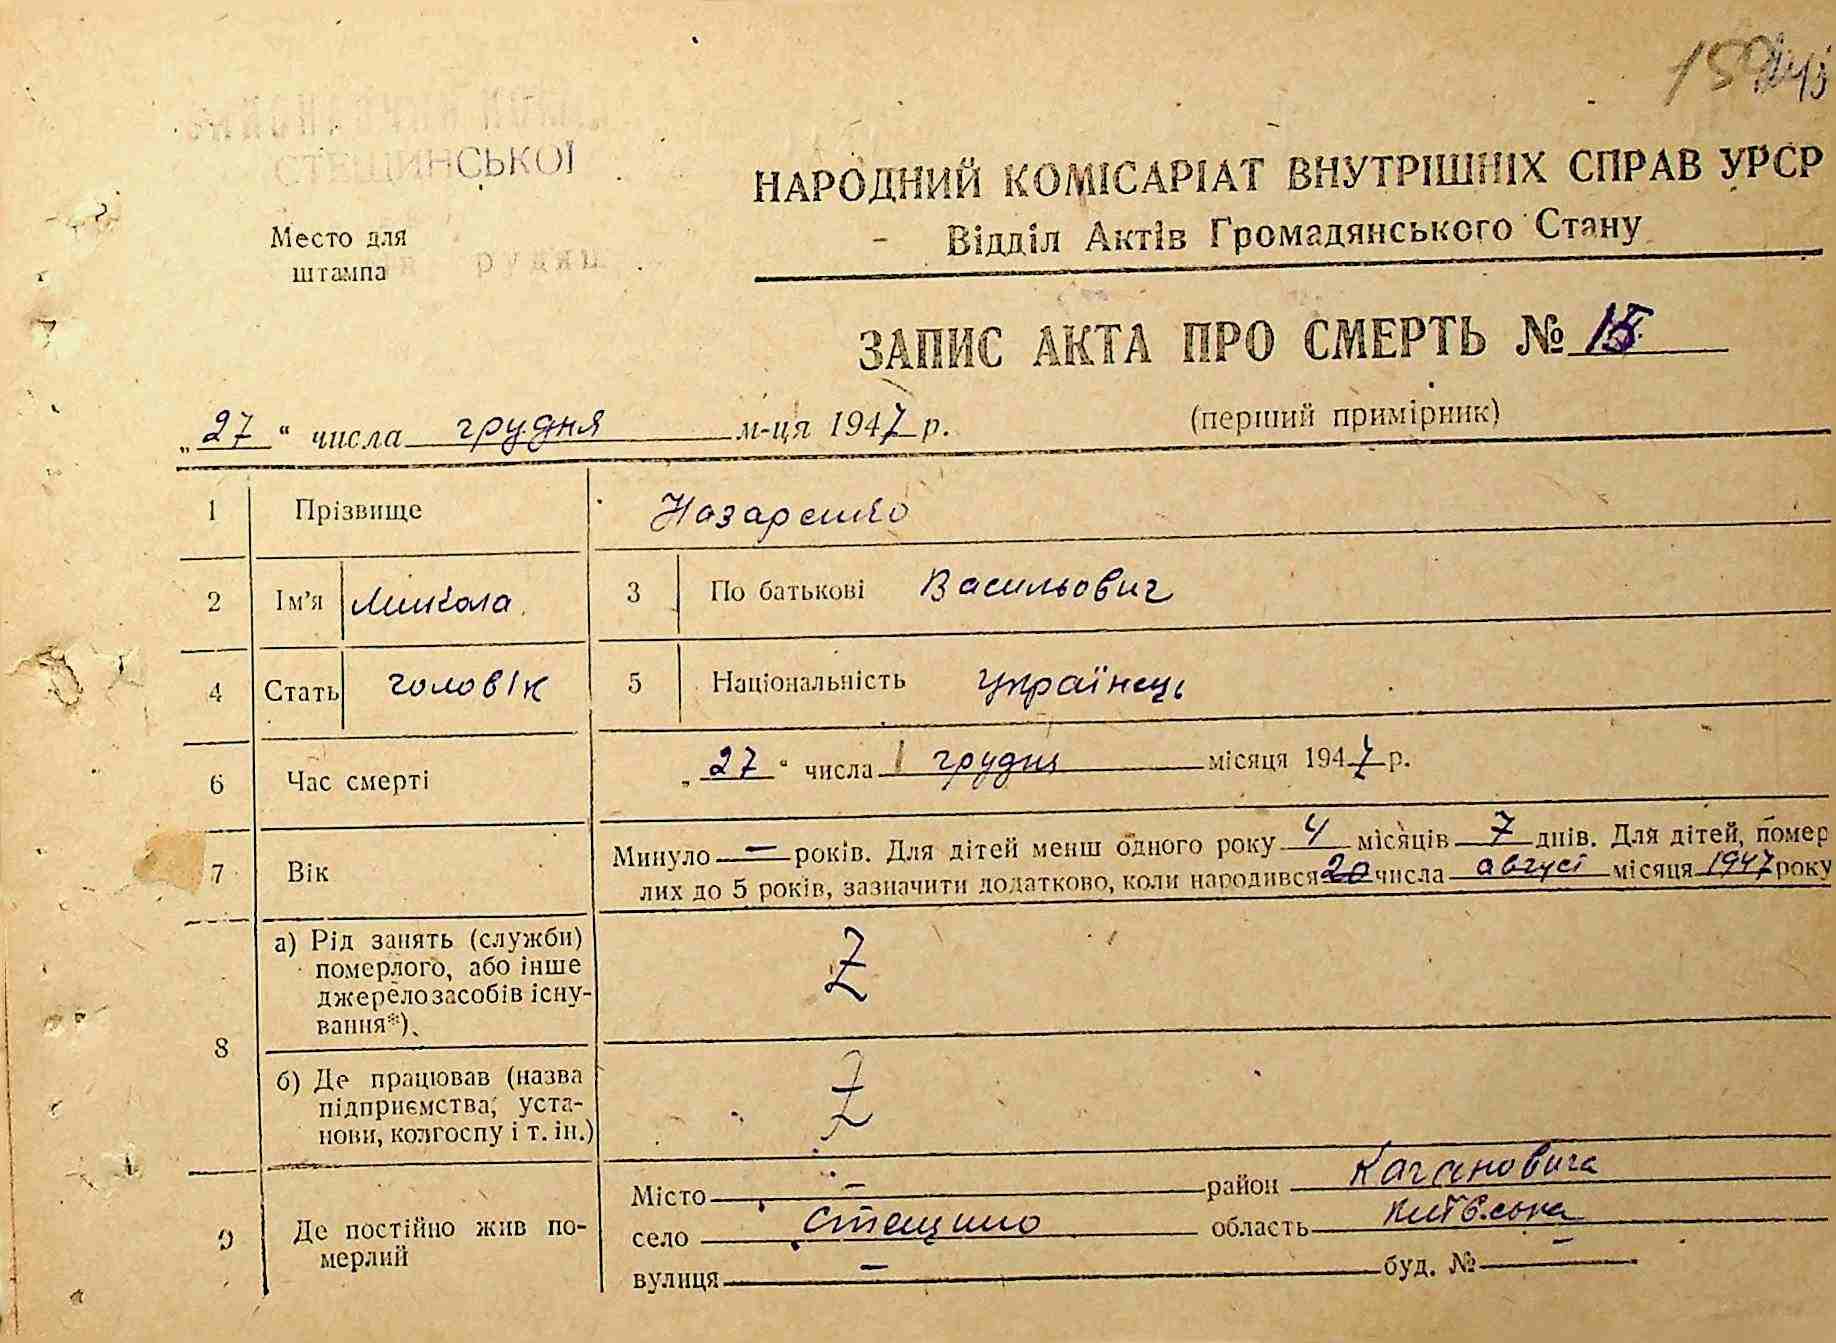 СТЕЩИНСЬКОЇ
Место для
штампа
НАРОДНИЙ КОМІСАРІАТ ВНУТРІШНІХ СПРАВ УРСР
Відділ Актів Громадянського Стану
ЗАПИС АКТА ПРО СМЕРТЬ №
„27“ числа грудня м-ця 1947 р.
(перший примірник)
1 Прізвище Назаренко
2 Ім'я Микола 3 По батькові Васильович
4 Стать чоловік 5 Національність українець
6 Час смерті „27“ числа грудня місяця 1947 р.
7 Вік
Минуло — років. Для дітей менш одного року 4 місяців 7 днів. Для дітей, помер
лих до 5 років, зазначити додатково, коли народився 20 числа август місяця 1947 року
8
а) Рід занять (служби)
померлого, або інше
джерело засобів існу-
вання*).
Z
б) Де працював (назва
підприємства, уста-
нови, колгоспу і т. ін.)
Z
9 Де постійно жив по-
мерлий
Місто — район Кагановича
село Стещино область
вулиця — буд. № —